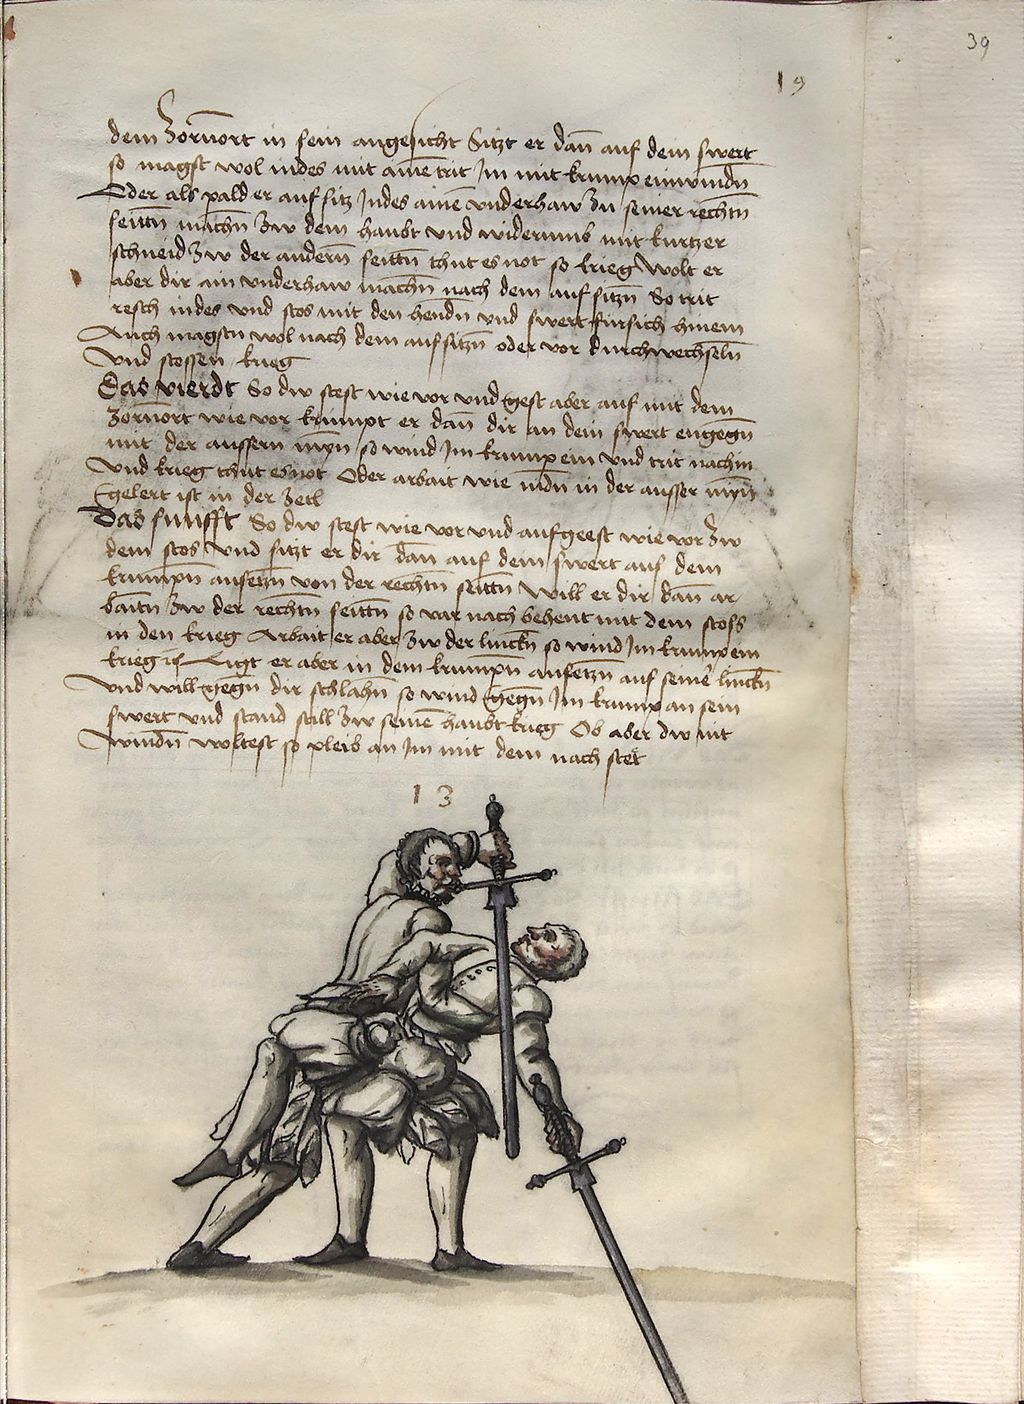 39
19
dem Zornort in sein angesicht Sitzt er dan̄ auf dein swert
so magst wol indes mit aine͂ trit Jm mit krump einwindn̄
Oder als pald er auf sitz Indes aine͂ vnderhaw Zu seiner rechtn̄
seittn̄ machn̄ Zw dem haubt vnd widerumb mit kurtzer
schneid Zw der andern̄ seittn̄ thut es not so krieg Wolt er
aber dir ain vnderhaw machn̄ nach dem auf sitzn̄ So trit
resch indes vnd stos mit den hendn̄ vnd swert fursich hinein
Auch magstu wol nach dem auf sitzn̄ oder vor durchwechseln̄
Vnd stossen krieg
Das vierdt So dw stest wie vor vnd gest aber auf mit dem
Zornort wie vor krumpt er dan̄ dir an dein swert engegn̄
mit der aussern so wind Jm krump ein vnd trit nachm
Vnd krieg thut es not Oder arbait wie in der ausser
gelert ist in der Zetl
Das funfft So dw stest wie vor vnd aufgeest wie vor Zw
dem stos Vnd sitzt er dir dan̄ auf dem swert auf dem
krumpn̄ aufsetzn̄ von der rechtn̄ seittn̄ Will er dir dan̄ ar
baitn̄ Zw der rechtn̄ seittn̄ so var nach behent mit dem stoss
in den krieg Arbait er aber Zw der linckn̄ so wind Jm krump ein
krieg Ligt er aber in dem krumpn̄ aufsetzn̄ auf seiner linckn̄
Vnd will gegn̄ dir schlahn̄ so wind gegn̄ Jm krump an sein
swert vnd stand still Zw seine͂ haubt krieg Ob aber dw nit
windn̄ woltest so pleib an Jm mit dem nach stet
13